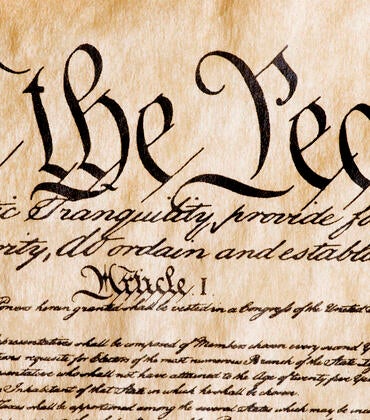 the Peo
ic Tranquility, provide fo
erity, do ordain and establi
Article. I
Powers herein granted shall be vested in a Congress of the United S
Representatives shall be composed of Members chosen every second Y
tions requisite for Electors of the most numerous Branch of the State L
resentative who shall not have attained to the Age of twenty five Years
n Inhabitant of that State in which he shall be chosen.
Taxes shall be apportioned among the several States which may be incl